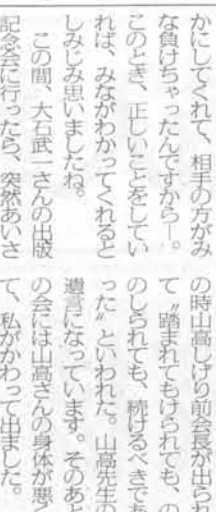 かにしてくれて、相手の方がみ
な負けちゃったんですから―。
このとき、正しいことをしてい
れば、みながわかってくれると
しみじみ思いましたね。
この間、大石武一さんの出版
記念会に行ったら、突然あいさ
の時山高しげり前会長が出られ
て〝踏まれてもけられても、の
のしられても、続けるべきであ
った〟といわれた。山高先生の
遺言になっています。そのあと
の会には山高さんの身体が悪く
て、私がかわって出ました。